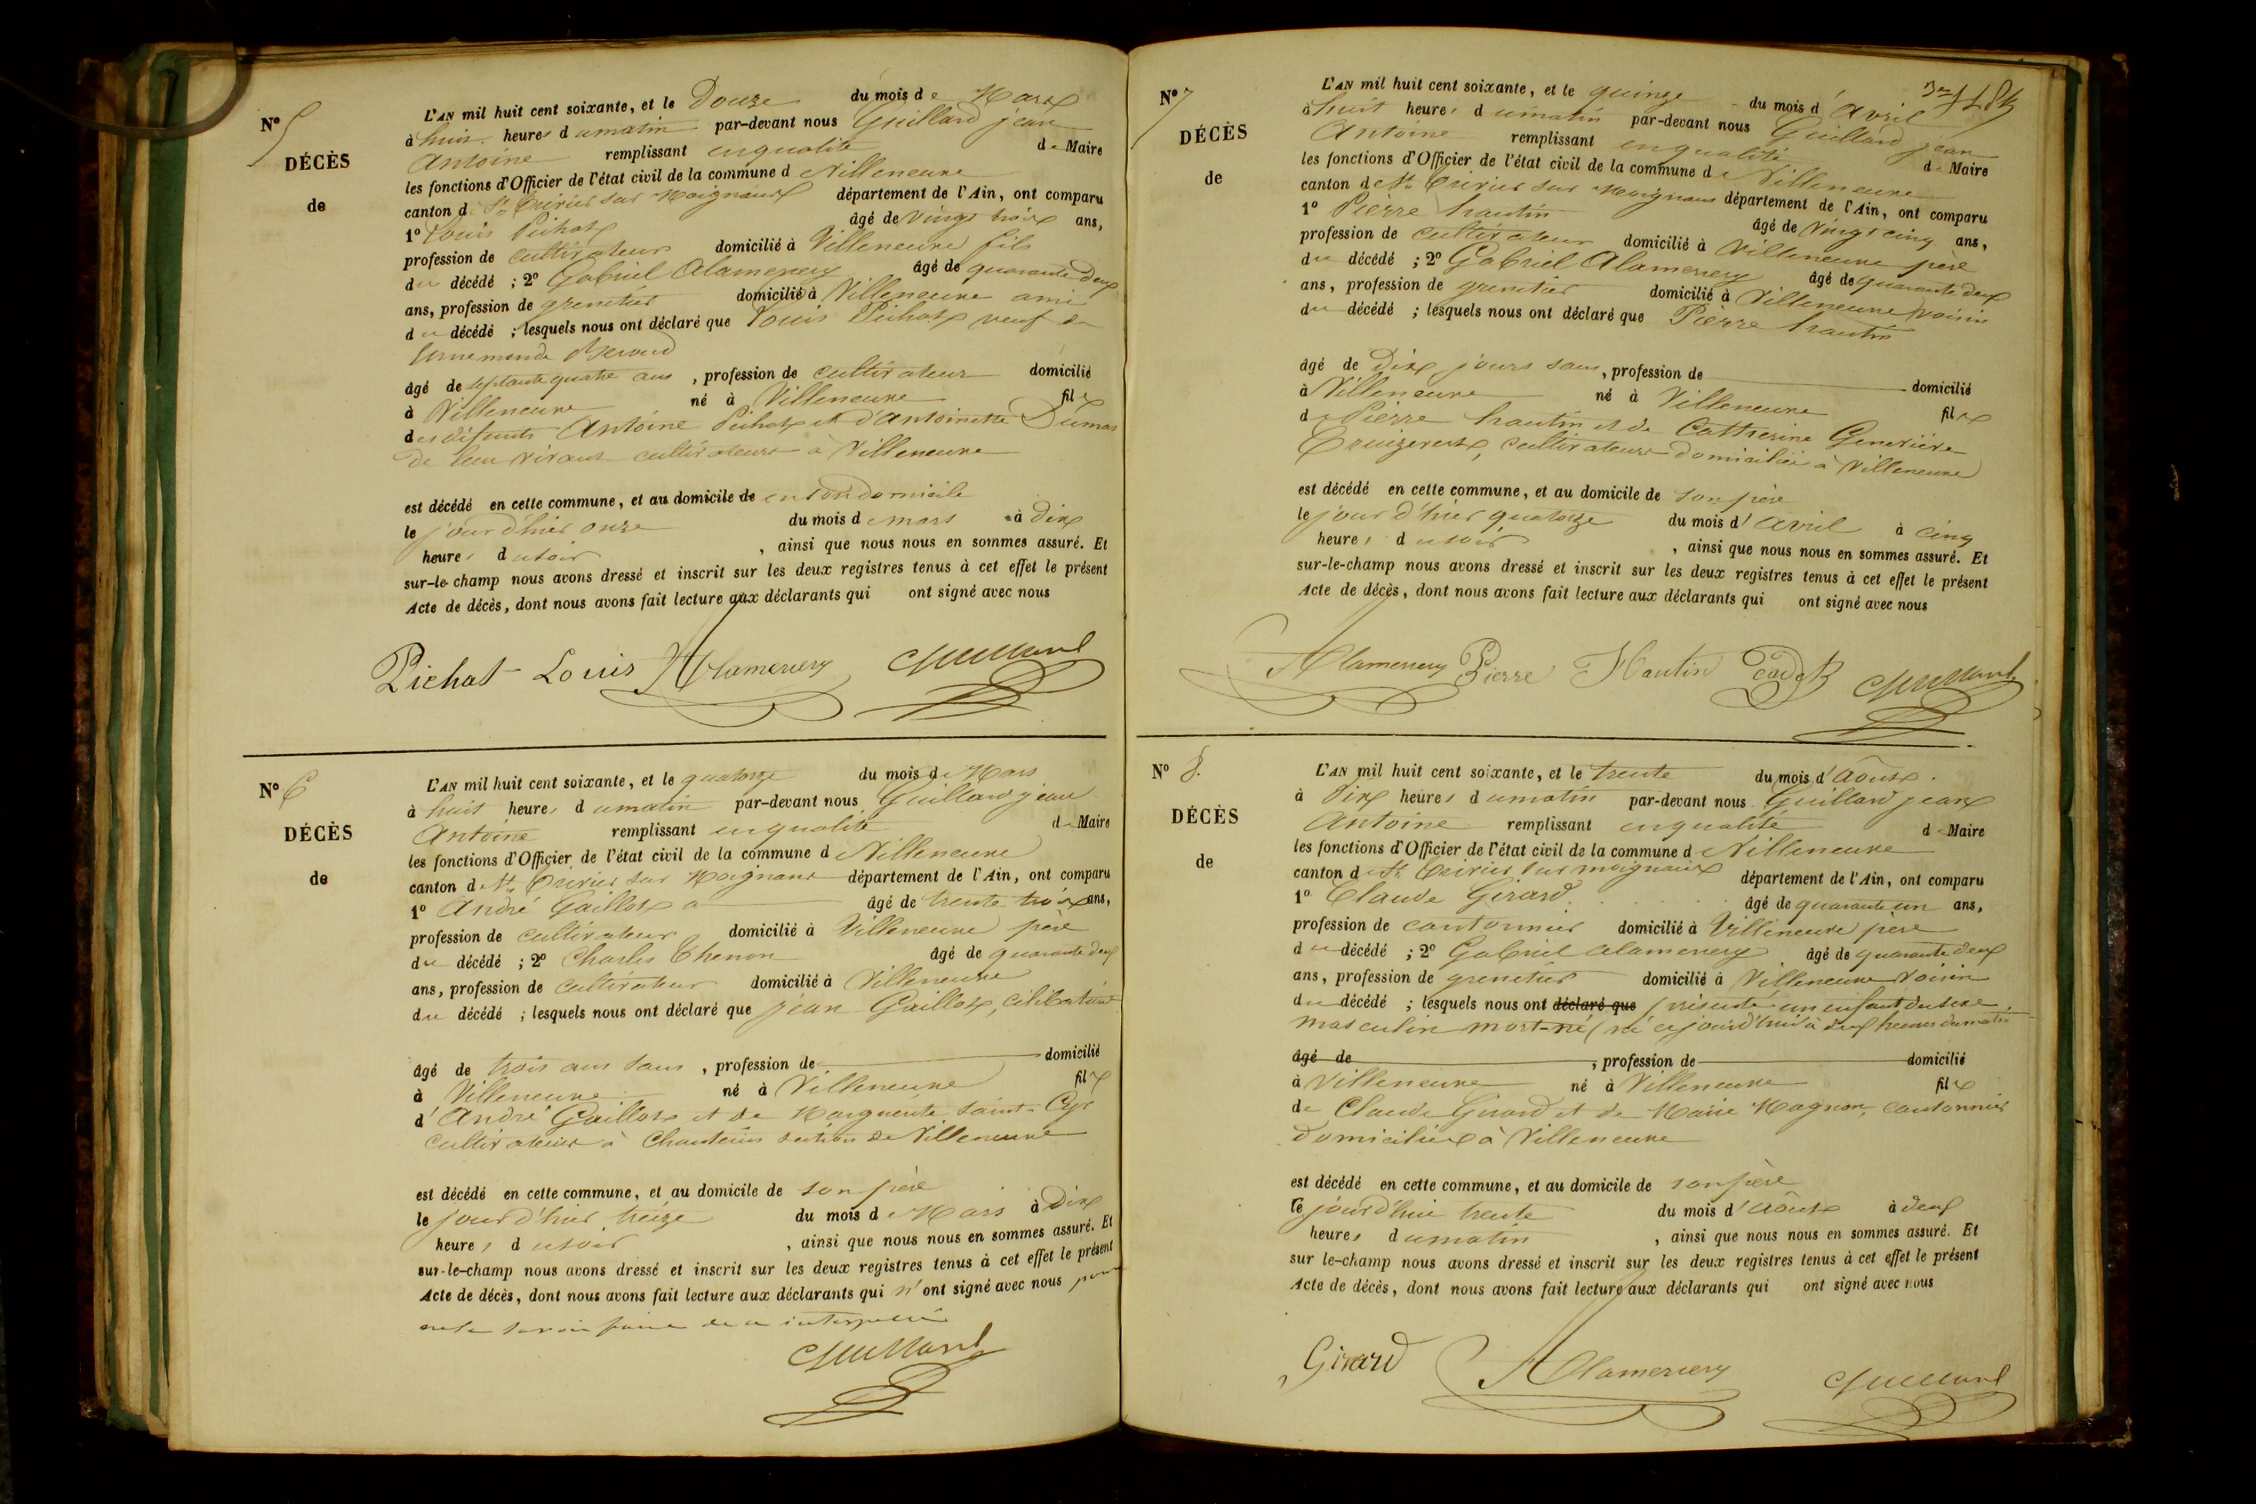 Nº 5
DÉCÈS
de
L'AN mil huit cent soixante, et le Douze du mois de Mars
à huit heures du matin par-devant nous Guillard jean
Antoine remplissant en qualité de Maire
les fonctions d'Officier de l'état civil de la commune de Villeneuve
canton de St Trivier sur Moignans département de l'Ain, ont comparu
1º Louis Pichat âgé de vingt trois ans,
profession de cultivateur domicilié à Villeneuve fils
du décédé ; 2º Gabriel Alamercery âgé de quarante deux
ans, profession de grenetier domicilié à Villeneuve ami
du décédé ; lesquels nous ont déclaré que Louis Pichat veuf de
âgé de septante quatre ans , profession de cultivateur domicilié
à Villeneuve né à Villeneuve fils
des défunts Antoine Pichat et d'Antoinette Dumas
de leur vivant cultivateurs à Villeneuve
est décédé en cette commune, et au domicile de en son domicile
le jour d'hier onze du mois de mars à dix
heures du soir , ainsi que nous nous en sommes assuré. Et
sur-le-champ nous avons dressé et inscrit sur les deux registres tenus à cet effet le présent
Acte de décès, dont nous avons fait lecture aux déclarants qui ont signé avec nous
Pichat Louis Alamercery Guillard
Nº 6
DÉCÈS
de
L'AN mil huit cent soixante, et le quatorze du mois de Mars
à huit heures du matin par-devant nous Guillard jean
Antoine remplissant en qualité de Maire
les fonctions d'Officier de l'état civil de la commune de Villeneuve
canton de St Trivier sur Moignans département de l'Ain, ont comparu
1º André Gaillot âgé de trente trois ans,
profession de cultivateur domicilié à Villeneuve père
du décédé ; 2º Charles Thenon âgé de quarante deux
ans, profession de cultivateur domicilié à Villeneuve
du décédé ; lesquels nous ont déclaré que jean Gaillot, célibataire
âgé de trois ans sans , profession de domicilié
à Villeneuve né à Villeneuve fils
d'André Gaillot et de Marguerite Saint-Cyr
cultivateurs à Chanteins section de Villeneuve
est décédé en cette commune, et au domicile de son père
le jour d'hier treize du mois de Mars à Dix
heures du soir , ainsi que nous nous en sommes assuré. Et
sur-le-champ nous avons dressé et inscrit sur les deux registres tenus à cet effet le présent
Acte de décès, dont nous avons fait lecture aux déclarants qui n'ont signé avec nous pour
ne le savoir faire de ce interpellés
Guillard
Nº 7
DÉCÈS
de
L'AN mil huit cent soixante, et le quinze du mois d'Avril
à huit heures du matin par-devant nous Guillard jean
Antoine remplissant en qualité de Maire
les fonctions d'Officier de l'état civil de la commune de Villeneuve
canton de St Trivier sur Moignans département de l'Ain, ont comparu
1º Pierre hautin âgé de vingt cinq ans,
profession de cultivateur domicilié à Villeneuve père
du décédé ; 2º Gabriel Alamercery âgé de quarante deux
ans, profession de grenetier domicilié à Villeneuve voisin
du décédé ; lesquels nous ont déclaré que Pierre hautin
âgé de Dix jours sans, profession de domicilié
à Villeneuve né à Villeneuve fils
de Pierre hautin et de Catherine Geneviève
cultivateurs domiciliés à Villeneuve
est décédé en cette commune, et au domicile de son père
le jour d'hier quatorze du mois d'avril à cinq
heures du soir , ainsi que nous nous en sommes assuré. Et
sur-le-champ nous avons dressé et inscrit sur les deux registres tenus à cet effet le présent
Acte de décès, dont nous avons fait lecture aux déclarants qui ont signé avec nous
Alamercery Pierre Hautin Cadet Guillard
Nº 8.
DÉCÈS
de
L'AN mil huit cent soixante, et le trente du mois d'Août.
à Dix heures du matin par-devant nous Guillard jean
Antoine remplissant en qualité de Maire
les fonctions d'Officier de l'état civil de la commune de Villeneuve
canton de St Trivier sur moignans département de l'Ain, ont comparu
1º Claude Girard âgé de quarante un ans,
profession de cantonnier domicilié à Villeneuve père
du décédé ; 2º Gabriel alamercery âgé de quarante deux
ans, profession de grenetier domicilié à Villeneuve voisin
du décédé ; lesquels nous ont déclaré que présenté un enfant du sexe
masculin mort-né, né ce jourd'hui à deux heures du matin
âgé de , profession de domicilié
à Villeneuve né à Villeneuve fils
de Claude Girard et de Marie Magnon, cantonnier
domiciliés à Villeneuve
est décédé en cette commune, et au domicile de son père
le jourd'hui trente du mois d'Août à deux
heures du matin , ainsi que nous nous en sommes assuré. Et
sur le-champ nous avons dressé et inscrit sur les deux registres tenus à cet effet le présent
Acte de décès, dont nous avons fait lecture aux déclarants qui ont signé avec nous
Girard Alamercery Guillard